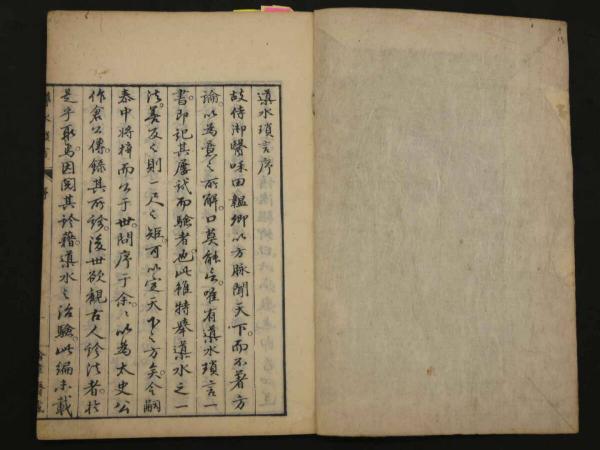 漢水瑣言序
故侍御醫味田韞卿以方脉聞天下。而不著方
論。以為意之所解。口莫能言。唯有漢水瑣言一
書。即記其屢試而驗者也。此雖特舉漢水之一
法。善反之則一尺之矩。可以定天下之方矣。今嗣
泰申將梓而公于世。問序于余。余以為太史公
作倉公傳。錄其所診。後世欲觀古人診法者。於
是乎取焉。因閱其診藉。漢水之治驗。此編未載